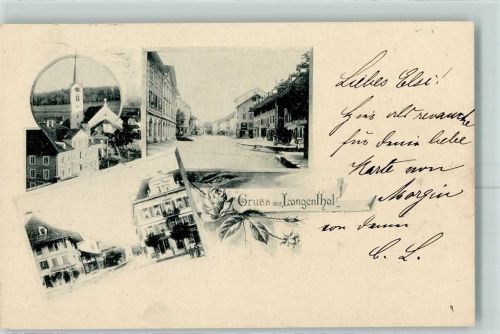 Gruss aus Langenthal.
Liebes Elsi!
für deine liebe
Karte von
von deiner
C. L.